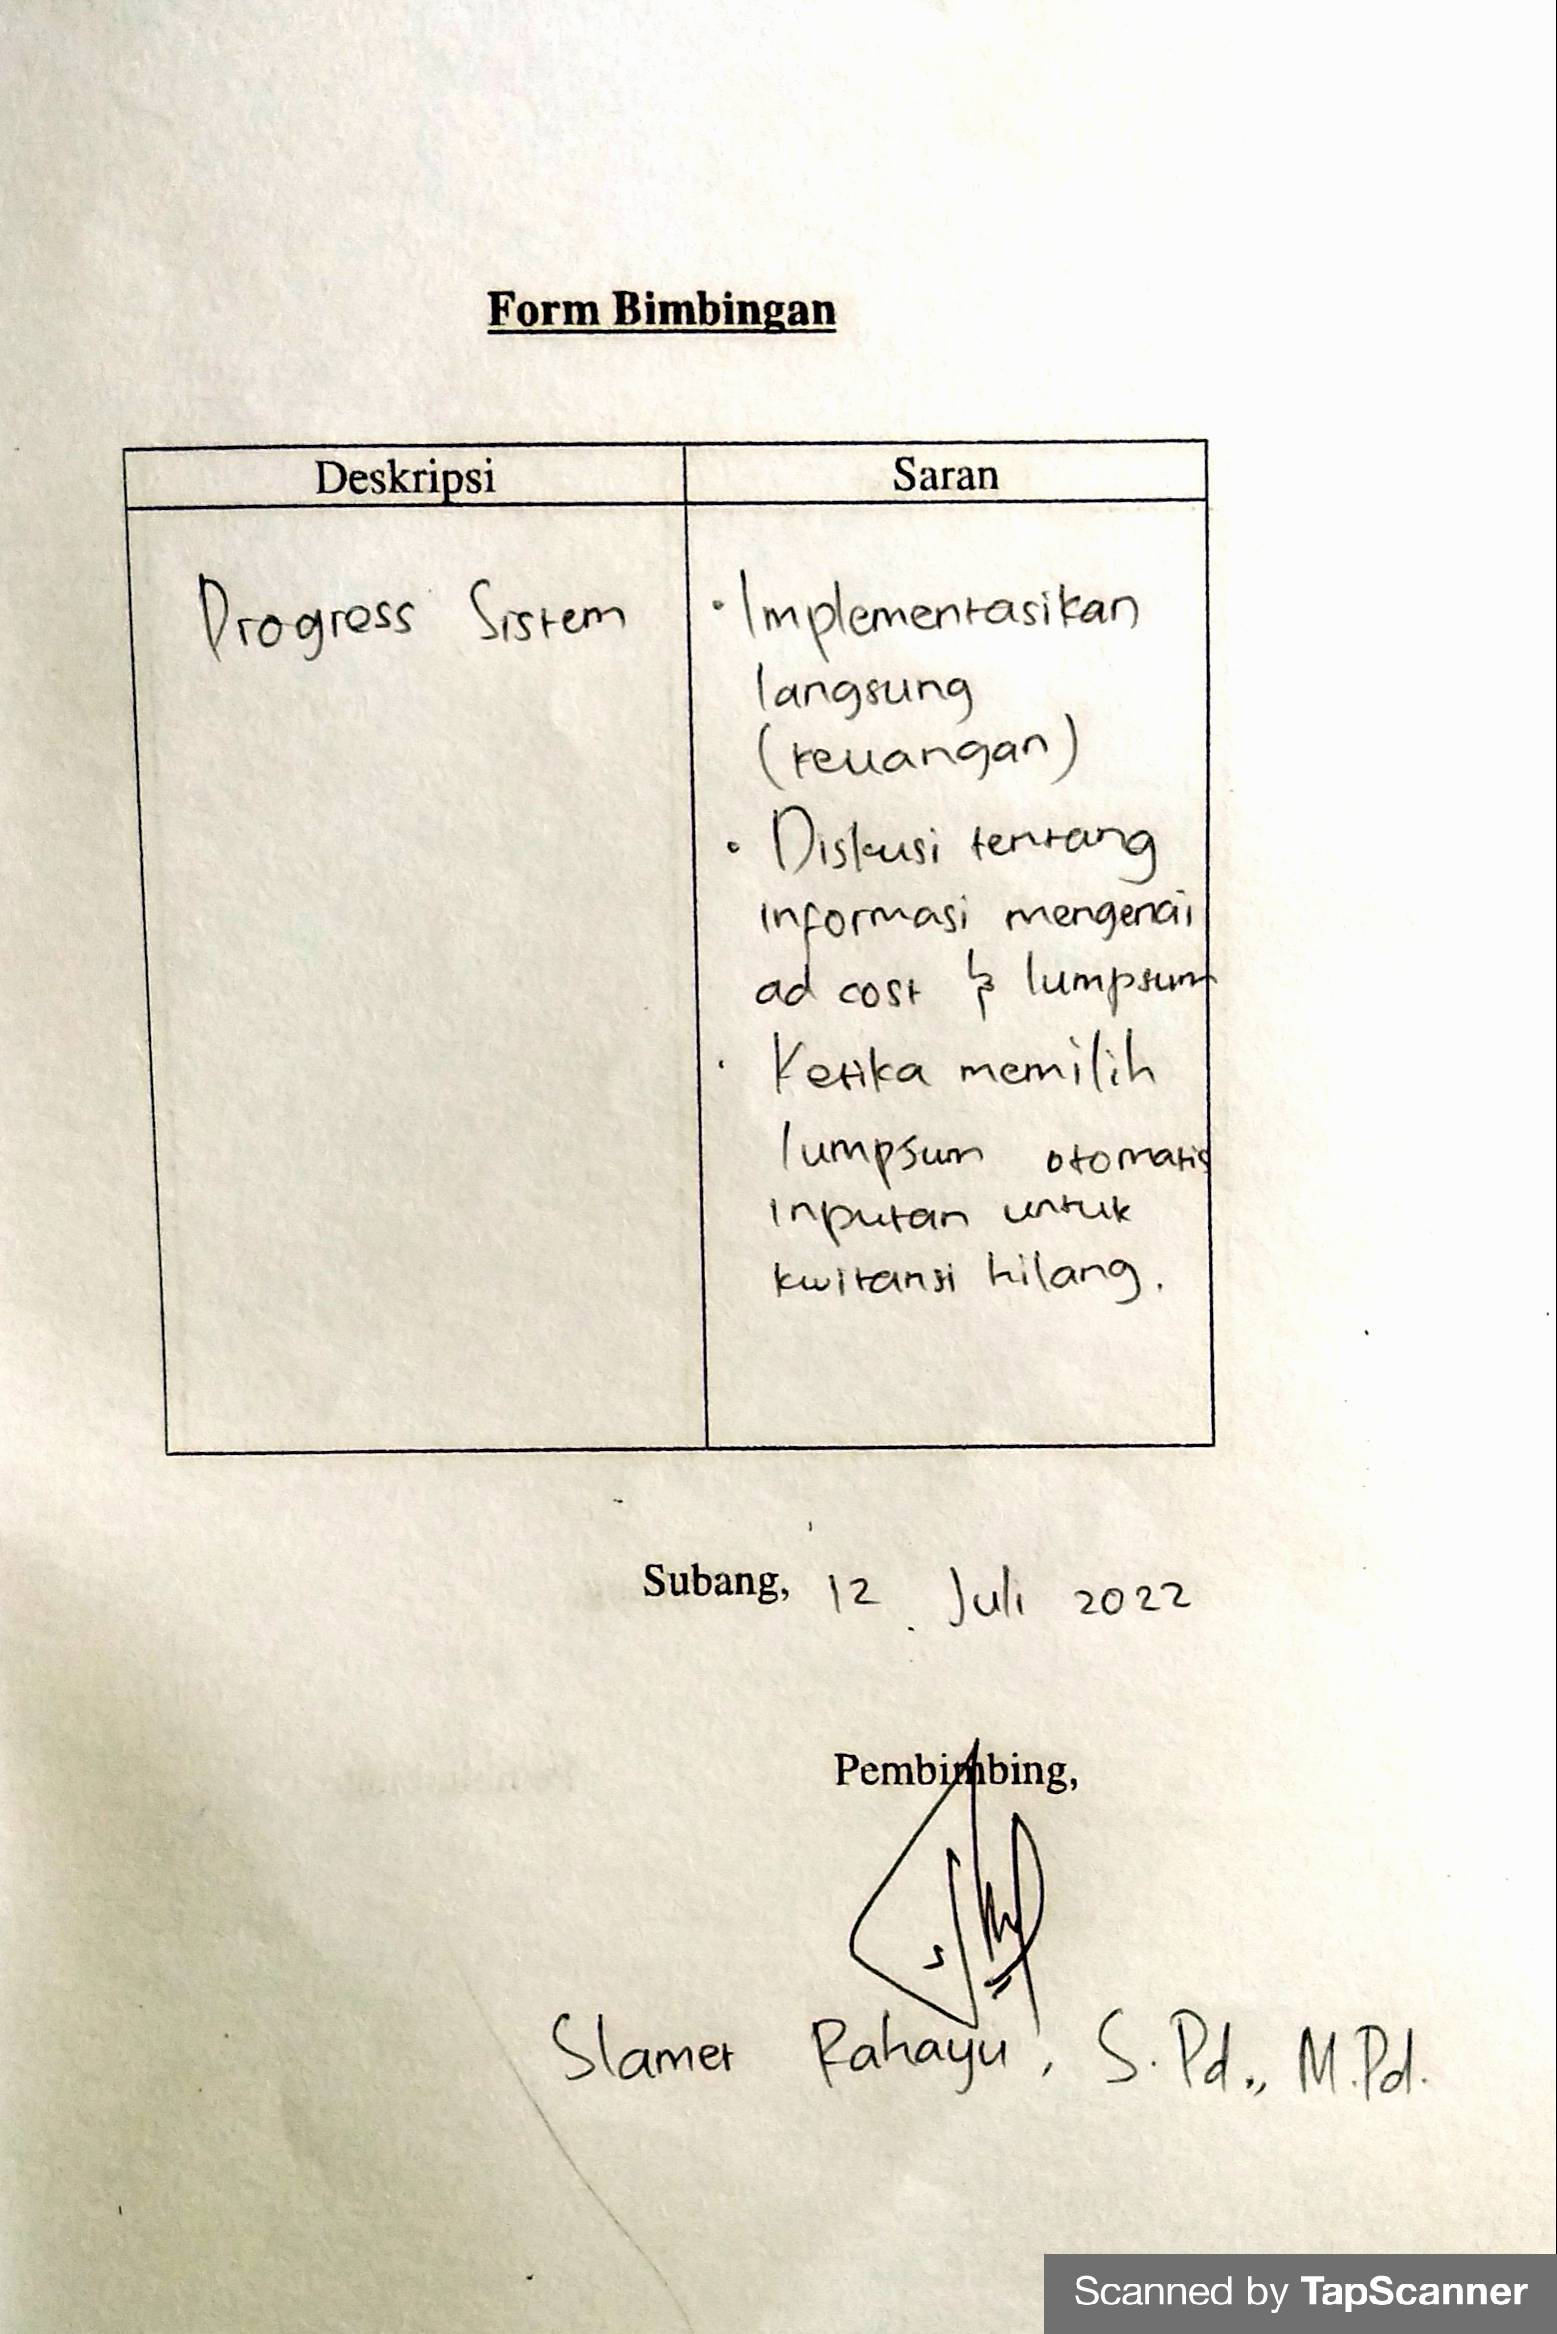 Form Bimbingan
Deskripsi Saran
Progress Sistem
• Implementasikan
langsung
(keuangan)
• Diskusi tentang
informasi mengenai
ad cost & lumpsum
• Ketika memilih
lumpsum otomatis
inputan untuk
kwitansi hilang.
Subang, 12 Juli 2022
Pembimbing,
Slamet Rahayu, S.Pd., M.Pd.
Scanned by TapScanner